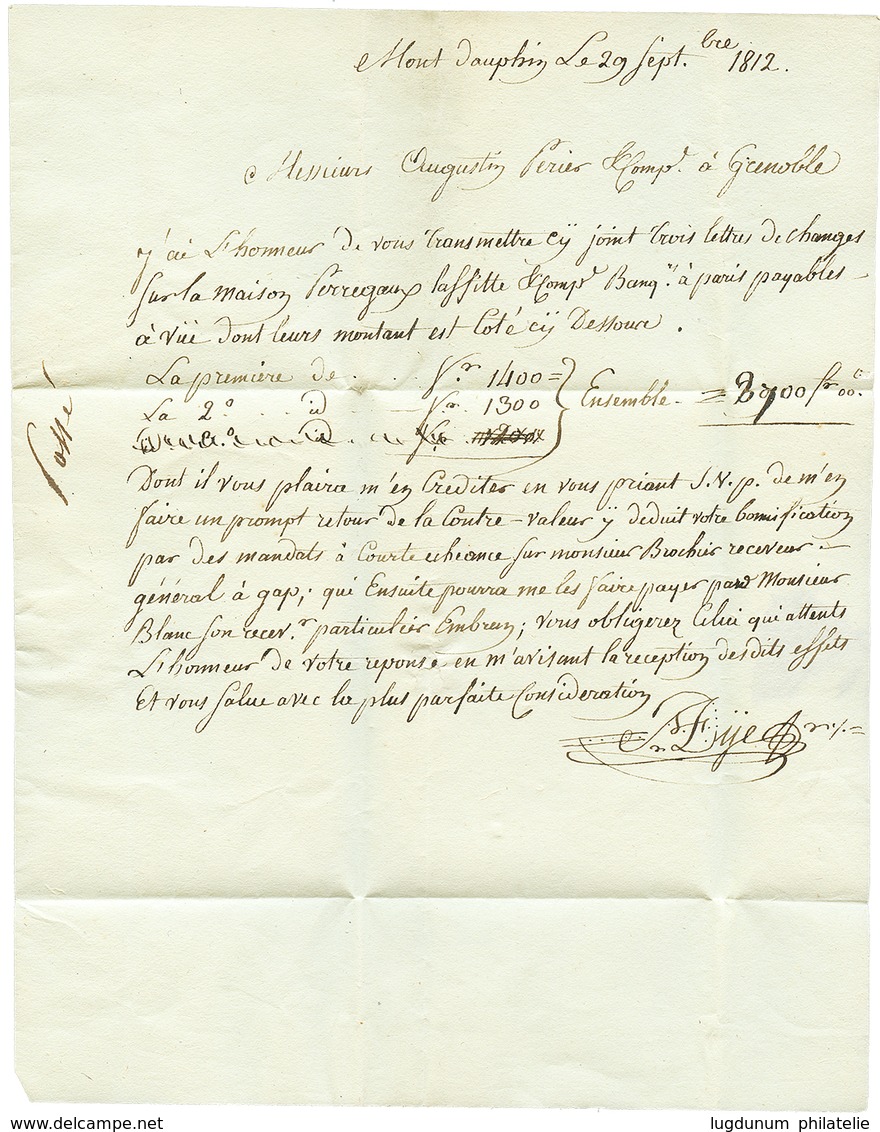 Mont Dauphin Le 29 Sept.bre 1812.
Messieurs Augustin Perier & Comp.e à Grenoble
J'ai L'honneur de vous transmettre cy joint trois lettres de changes
sur la maison Perregaux laffitte & Comp.e Banq.rs à paris payables
à vüe dont leurs montant est Coté cy Dessous.
La première de . . . . f.r 1400 =
La 2.o . . . id f.r 1300
Ensemble = 2700 fr 00c.
passé
Dont il vous plaira m'en Crediter en vous priant S.V.p. de m'en
faire un prompt retour de la Contre-valeur y deduit votre bonification
par des mandats à Courte echeance sur monsieur Brochier receveur
général à gap; qui Ensuite pourra me les faire payer par Monsieur
Blanc son recev.r particulier Embrun; vous obligerez Celui qui attents
L'honneur de votre reponse en m'avisant la reception desdits effets
Et vous Salue avec la plus parfaite Consideration
delcampe.net
lugdunum philatelie